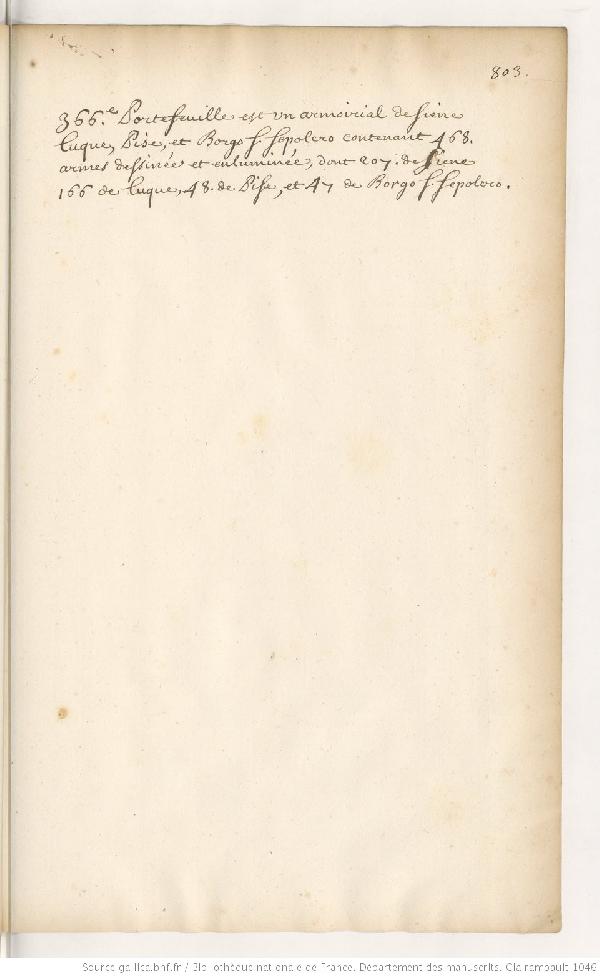 803.
366.e Portefeuille est un armoirial de Siene
Luque, Pise, et Borgo S. Sepolcro contenant 468.
armes dessinées et enluminée, dont 207. de Siene
166 de Luque, 48. de Pise, et 47 de Borgo S. Sepolcro.
Source gallica.bnf.fr / Bibliothèque nationale de France. Département des manuscrits. Clairambault 1046